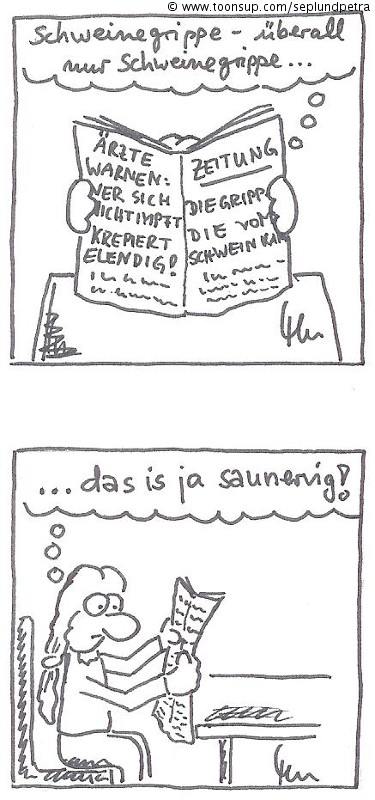 © www.toonsup.com/seplundpetra
Schweinegrippe - überall
nur Schweinegrippe...
ÄRZTE
WARNEN:
WER SICH
NICHT IMPFT
KREPIERT
ELENDIG!
ZEITUNG
DIE GRIPP
DIE VOM
SCHWEIN KAM
... das is ja saunervig!